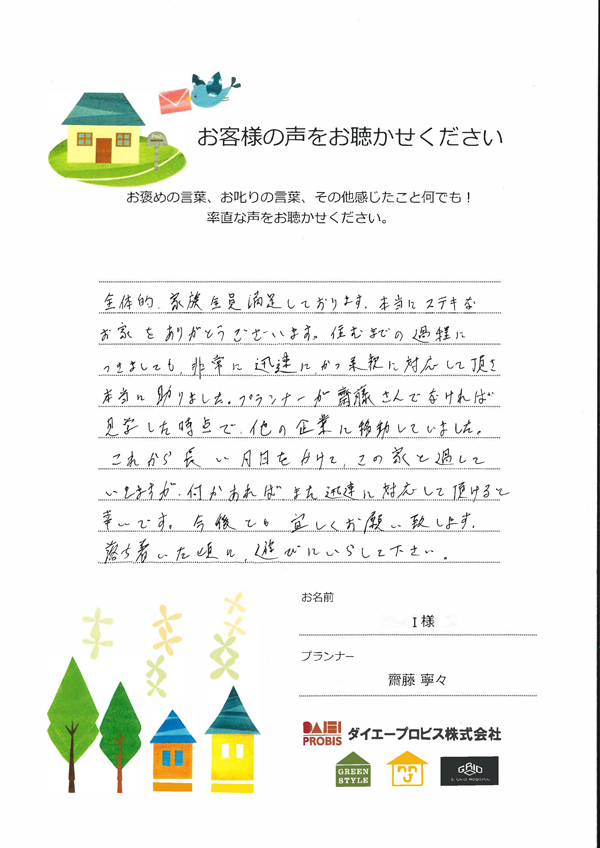 お客様の声をお聴かせください
お褒めの言葉、お叱りの言葉、その他感じたこと何でも！
率直な声をお聴かせください。
全体的、家族全員満足しております。本当にステキな
お家をありがとうございます。住むまでの過程に
つきましても、非常に迅速にかつ柔軟に対応して頂き
本当に助りました。プランナーが齋藤さんでなければ
見学した時点で、他の企業に移動していました。
これから長い月日をかけて、この家と過して
いきますが、何かあれば、また迅速に対応して頂けると
幸いです。今後とも宜しくお願い致します。
落ち着いた頃に、遊びにいらして下さい。
お名前
I 様
プランナー
齋藤 寧々
DAIEI
PROBIS
ダイエープロビス株式会社
GREEN
STYLE